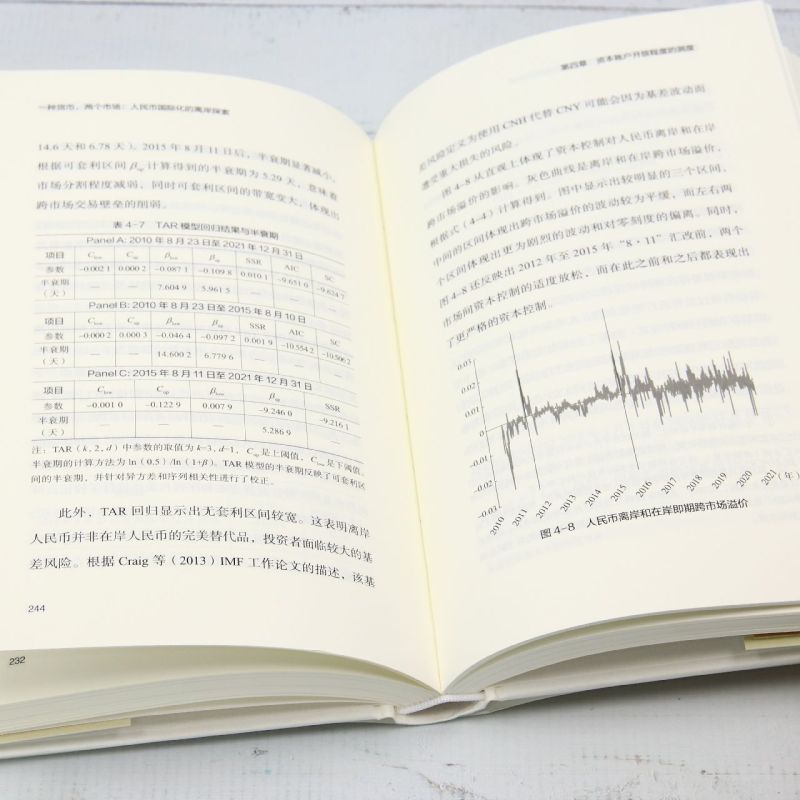 一种货币，两个市场：人民币国际化的离岸探索
14.6 天和 6.78 天）。2015 年 8 月 11 日后，半衰期显著减小，
根据可套利区间 βup 计算得到的半衰期为 5.29 天，意味着
市场分割程度减弱，同时可套利区间的带宽变大，体现出
跨市场交易壁垒的削弱。
表 4-7 TAR 模型回归结果与半衰期
Panel A: 2010 年 8 月 23 日至 2021 年 12 月 31 日
项目 Clow Cup βlow βup SSR AIC SC
参数 -0.002 1 0.000 2 -0.087 1 -0.109 8 0.010 1 -9.651 0 -9.624 7
半衰期（天） — — 7.604 9 5.961 5 — — —
Panel B: 2010 年 8 月 23 日至 2015 年 8 月 10 日
项目 Clow Cup βlow βup SSR AIC SC
参数 -0.000 2 0.000 3 -0.046 4 -0.097 2 0.001 9 -10.554 2 -10.506 2
半衰期（天） — — 14.600 2 6.779 6 — — —
Panel C: 2015 年 8 月 11 日至 2021 年 12 月 31 日
项目 Clow Cup βlow βup SSR
参数 -0.001 0 -0.122 9 0.007 9 -9.246 0 -9.216 1
半衰期（天） — — — 5.286 9 —
注：TAR（k, 2, d）中参数的取值为 k=3, d=1，Cup 是上阈值，Clow 是下阈值，
半衰期的计算方法为 ln（0.5）/ln（1+β）。TAR 模型的半衰期反映了可套利区
间的半衰期，并针对异方差和序列相关性进行了校正。
此外，TAR 回归显示出无套利区间较宽。这表明离岸
人民币并非在岸人民币的完美替代品，投资者面临较大的基
差风险。根据 Craig 等（2013）IMF 工作论文的描述，该基
244
232
第四章 资本账户开放程度的测度
差风险定义为使用 CNH 代替 CNY 可能会因为基差波动而
遭受重大损失的风险。
图 4-8 从直观上体现了资本控制对人民币离岸和在岸
跨市场溢价的影响。灰色曲线是离岸和在岸跨市场溢价，
根据式（4-4）计算得到。图中显示出较明显的三个区间，
中间的区间体现出跨市场溢价的波动较为平缓，而左右两
个区间体现出更为剧烈的波动和对零刻度的偏离。同时，
图 4-8 还反映出 2012 年至 2015 年“8·11”汇改前，两个
市场间资本控制的适度放松，而在此之前和之后都表现出
了更严格的资本控制。
0.03
0.02
0.01
0
-0.01
-0.02
-0.03
2010 2011 2012 2013 2014 2015 2016 2017 2018 2019 2020 2021（年）
图 4-8 人民币离岸和在岸即期跨市场溢价